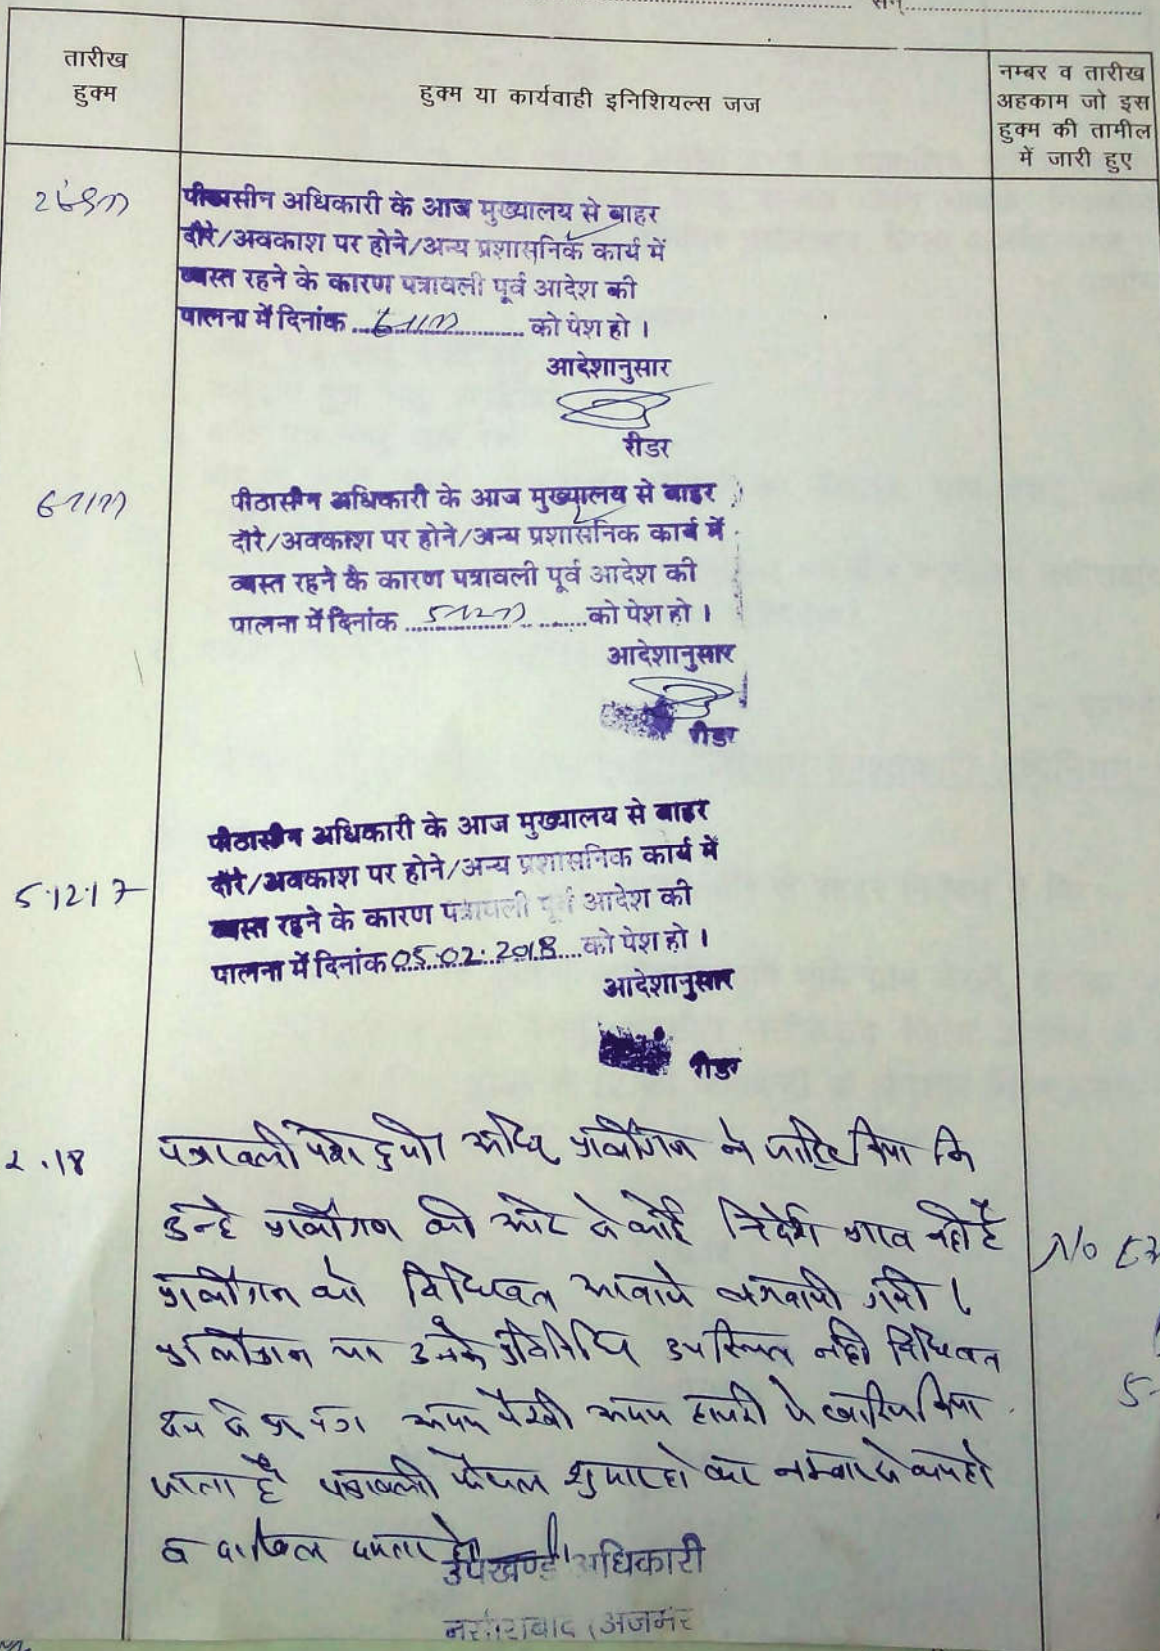 सन्
तारीख
हुक्म
हुक्म या कार्यवाही इनिशियल्स जज
नम्बर व तारीख
अहकाम जो इस
हुक्म की तामील
में जारी हुए
पीठासीन अधिकारी के आज मुख्यालय से बाहर
दौरे/अवकाश पर होने/अन्य प्रशासनिक कार्य में
व्यस्त रहने के कारण पत्रावली पूर्व आदेश की
पालना में दिनांक को पेश हो ।
आदेशानुसार
रीडर
पीठासीन अधिकारी के आज मुख्यालय से बाहर
दौरे/अवकाश पर होने/अन्य प्रशासनिक कार्य में
व्यस्त रहने के कारण पत्रावली पूर्व आदेश की
पालना में दिनांक को पेश हो ।
आदेशानुसार
रीडर
पीठासीन अधिकारी के आज मुख्यालय से बाहर
दौरे/अवकाश पर होने/अन्य प्रशासनिक कार्य में
5.12.17
व्यस्त रहने के कारण पत्रावली पूर्व आदेश की
पालना में दिनांक 05.02.2018 को पेश हो ।
आदेशानुसार
रीडर
2.18 पत्रावली पेश हुयी। ने जाहिर किया कि
उन्हे की ओर से कोई निर्देश प्राप्त नही है
को विधिवत आवाजे लगवायी गयी ।
या उनके प्रतिनिधि उपस्थित नही विधिवत
अदम पैरवी अदम हाजरी मे खारिज किया
जाता है पत्रावली फैसल शुमार हो कर नम्बर से कम हो
व दाखिल दफ्तर हो।
उपखण्ड अधिकारी
नसीराबाद (अजमेर